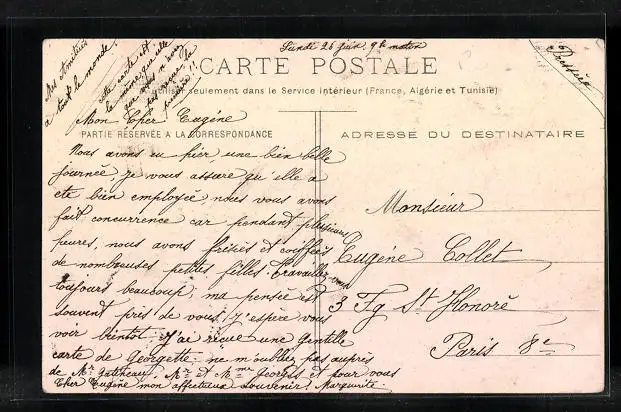 Lundi 26 juin 9h matin
Pressée
Mes Amitiés
à tout le monde.
cette carte est
la même que celle
que vous n'avez
pas reçue la
première!!
CARTE POSTALE
seulement dans le Service intérieur (France, Algérie et Tunisie)
Mon Cher Eugène
PARTIE RÉSERVÉE A LA CORRESPONDANCE
Nous avons eu hier, une bien belle
journée, je vous assure qu'elle a
été bien employée, nous vous avons
fait concurrence car pendant plusieurs
heures, nous avons frisées et coiffées
de nombreuses petites filles. Travaillez-vous
toujours beaucoup; ma pensée est
souvent près de vous. J'espère vous
voir bientôt. J'ai reçue une Gentille
carte de Georgette. ne m'oubliez pas auprès
de Mr et Mme Georges et pour vous
Cher Eugène mon affectueux souvenir! Marguerite.
ADRESSE DU DESTINATAIRE
Monsieur
Eugène Collet
3 Fg St Honoré
Paris 8e